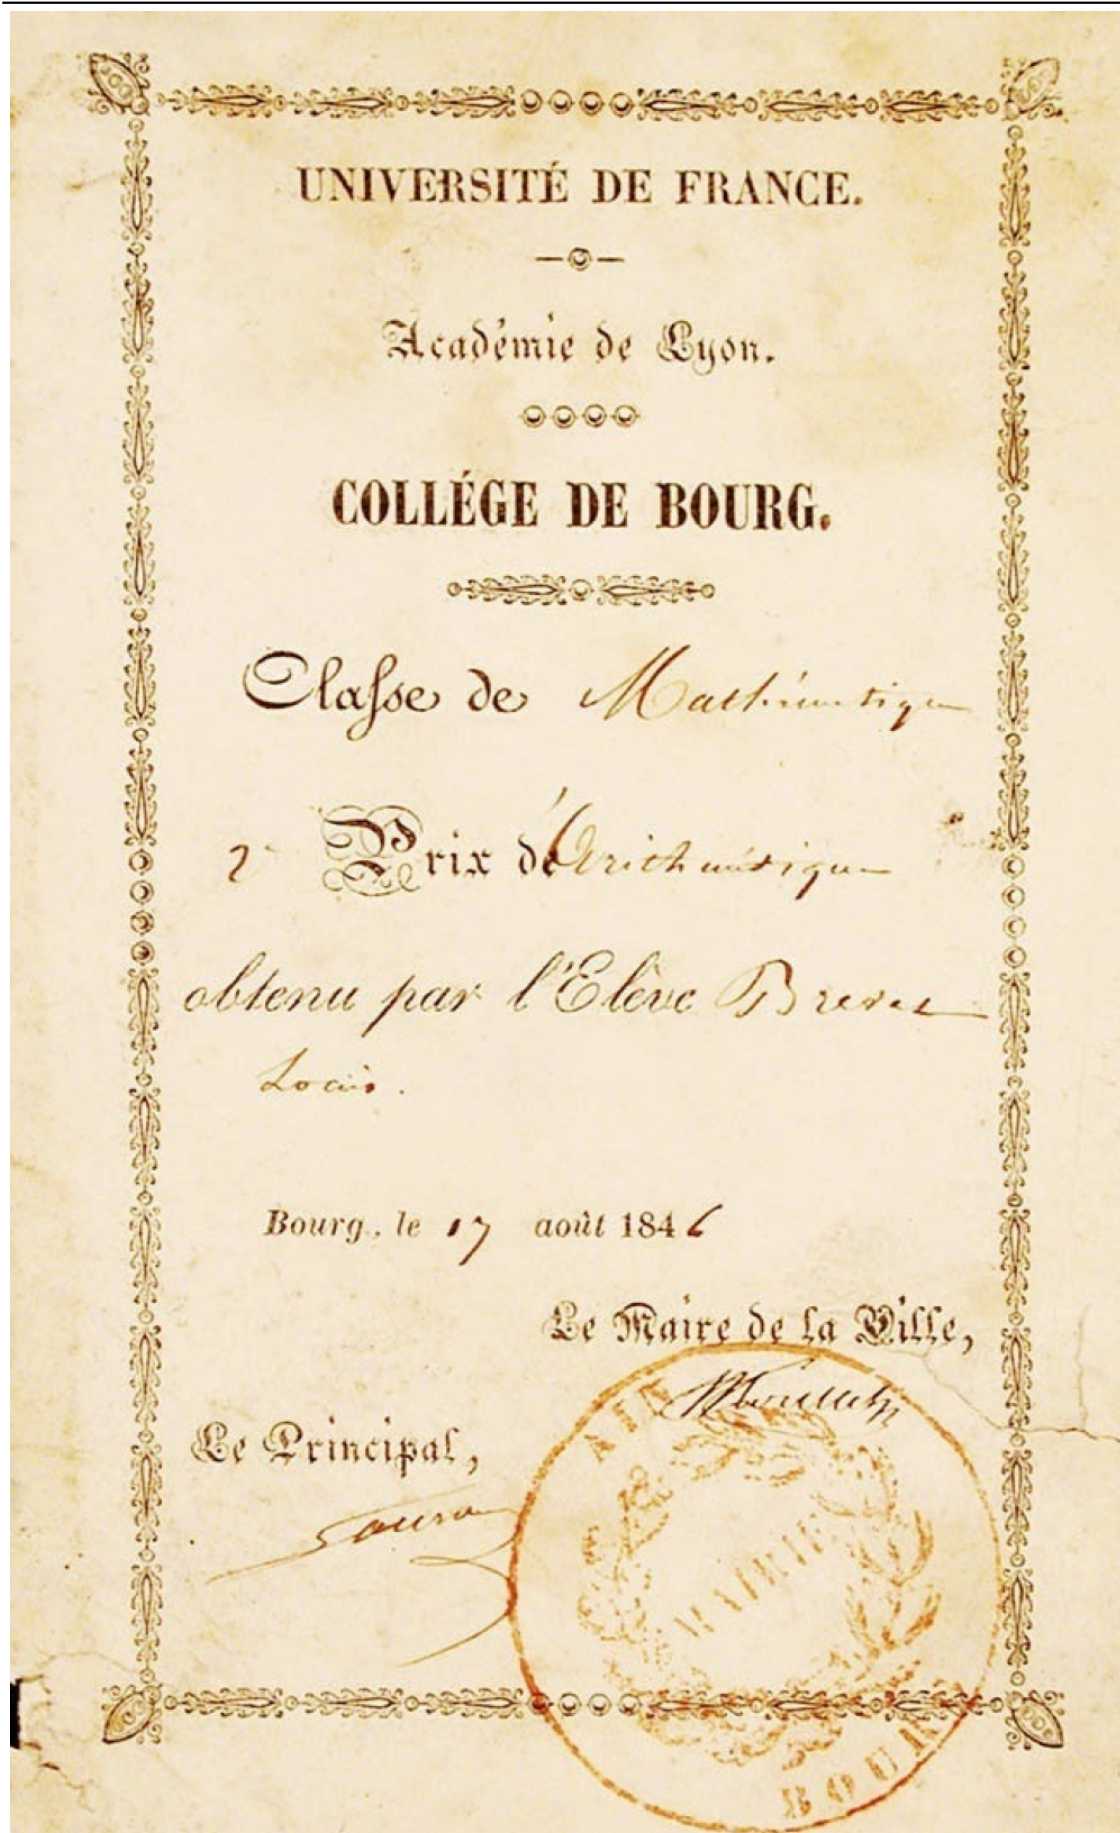 UNIVERSITÉ DE FRANCE.
Académie de Lyon.
COLLÉGE DE BOURG.
Classe de Mathématique
2e Prix d'Arithmétique
obtenu par l'Elève
Louis.
Bourg, le 17 août 1846
Le Maire de la Ville,
Le Principal,
AIN
MAIRIE
BOURG